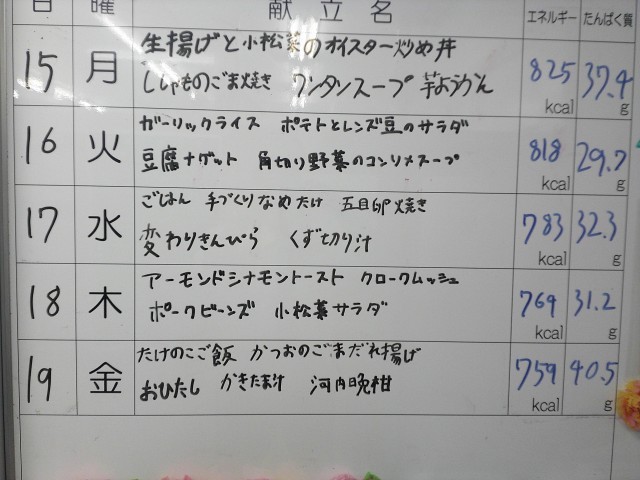 日 曜 献立名 エネルギー たんぱく質
15 月 生揚げと小松菜のオイスター炒め丼 825 kcal 37.4 g
ししゃものごま焼き ワンタンスープ 芋ようかん
16 火 ガーリックライス ポテトとレンズ豆のサラダ 818 kcal 29.7 g
豆腐ナゲット 角切り野菜のコンソメスープ
17 水 ごはん 手づくりなめたけ 五目卵焼き 783 kcal 32.3 g
変わりきんぴら くず切り汁
18 木 アーモンドシナモントースト クロークムッシュ 769 kcal 31.2 g
ポークビーンズ 小松菜サラダ
19 金 たけのこご飯 かつおのごまだれ揚げ 759 kcal 40.5 g
おひたし かきたま汁 河内晩柑